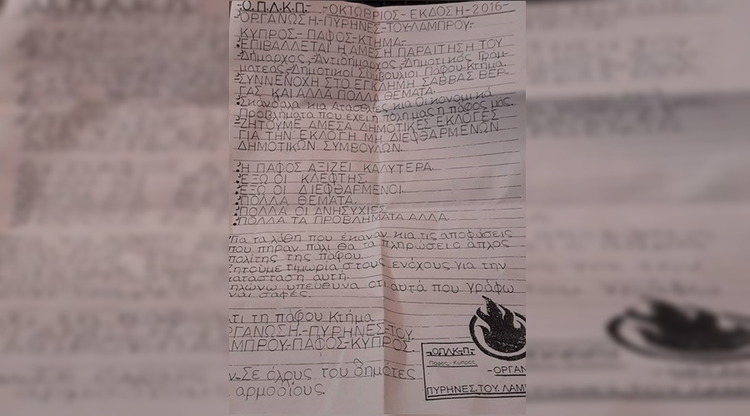 -Ο.Π.Λ.Κ.Π- -ΟΚΤΩΒΡΙΟΣ-ΕΚΔΟΣΗ-2016-
-ΟΡΓΑΝΩΣΗ-ΠΥΡΗΝΕΣ-ΤΟΥ-ΛΑΜΠΡΟΥ-
ΚΥΠΡΟΣ-ΠΑΦΟΣ-ΚΤΗΜΑ-
ΕΠΙΒΑΛΛΕΤΑΙ Η ΑΜΕΣΗ ΠΑΡΑΙΤΗΣΗ ΤΟΥ
Δήμαρχος, Αντιδήμαρχος, Δημοτικός Γραμ-
ματέας, Δημοτικοί Συμβούλιοι Πάφου-Κτήμα.
ΣΥΝΝΕΝΟΧΗ ΣΤΟ ΕΓΚΛΗΜΗ ΣΑΒΒΑΣ ΒΕΡ-
ΓΑΣ ΚΑΙ ΑΛΛΑ ΠΟΛΛΑ ΘΕΜΑΤΑ.
Σκάνδαλα κια Ατασθλίες κια Οικονομικά
Προβλήματα που έχει η πόλη μας η πάφος μας.
ΖΗΤΟΥΜΕ ΑΜΕΣΑ ΔΗΜΟΤΙΚΕΣ ΕΚΛΟΓΕΣ
ΓΙΑ ΤΗΝ ΕΚΛΟΓΗ ΜΗ ΔΙΕΦΘΑΡΜΕΝΩΝ
ΔΗΜΟΤΙΚΩΝ ΣΥΜΒΟΥΛΩΝ.
Η ΠΑΦΟΣ ΑΞΙΖΕΙ ΚΑΛΥΤΕΡΑ.
ΕΞΩ ΟΙ ΚΛΕΦΤΗΣ.
ΕΞΩ ΟΙ ΔΙΕΦΘΑΡΜΕΝΟΙ.
ΠΟΛΛΑ ΘΕΜΑΤΑ.
ΠΟΛΛΑ ΟΙ ΑΝΗΣΥΧΙΕΣ.
ΠΟΛΛΑ ΤΑ ΠΡΟΒΛΗΜΑΤΑ ΑΛΛΑ.
Για τα λάθη που έκαναν κια τις αποφάσεις
που πήραν πάλι θα τα πληρώσει ο απλός
πολίτης της πάφου.
ζητούμε τιμωρία στους ενόχους για την
κατάσταση αυτή.
ηλώνω υπεύθυνα οτι αυτά που γράφω
ναι σαφές.
τι τη πάφου Κτήμα
ΡΓΑΝΩΣΗ.-ΠΥΡΗΝΕΣ-ΤΟΥ.
ΑΜΠΡΟΥ-ΠΑΦΟΣ-ΚΥΠΡΟΣ.
Σε όλους του δημότες
αρμόδιους.
-Ο.Π.Λ.Κ-Π-
Πάφος-Κύπρος
-ΟΡΓΑΝ
ΠΥΡΗΝΕΣ.ΤΟΥ.ΛΑΜ